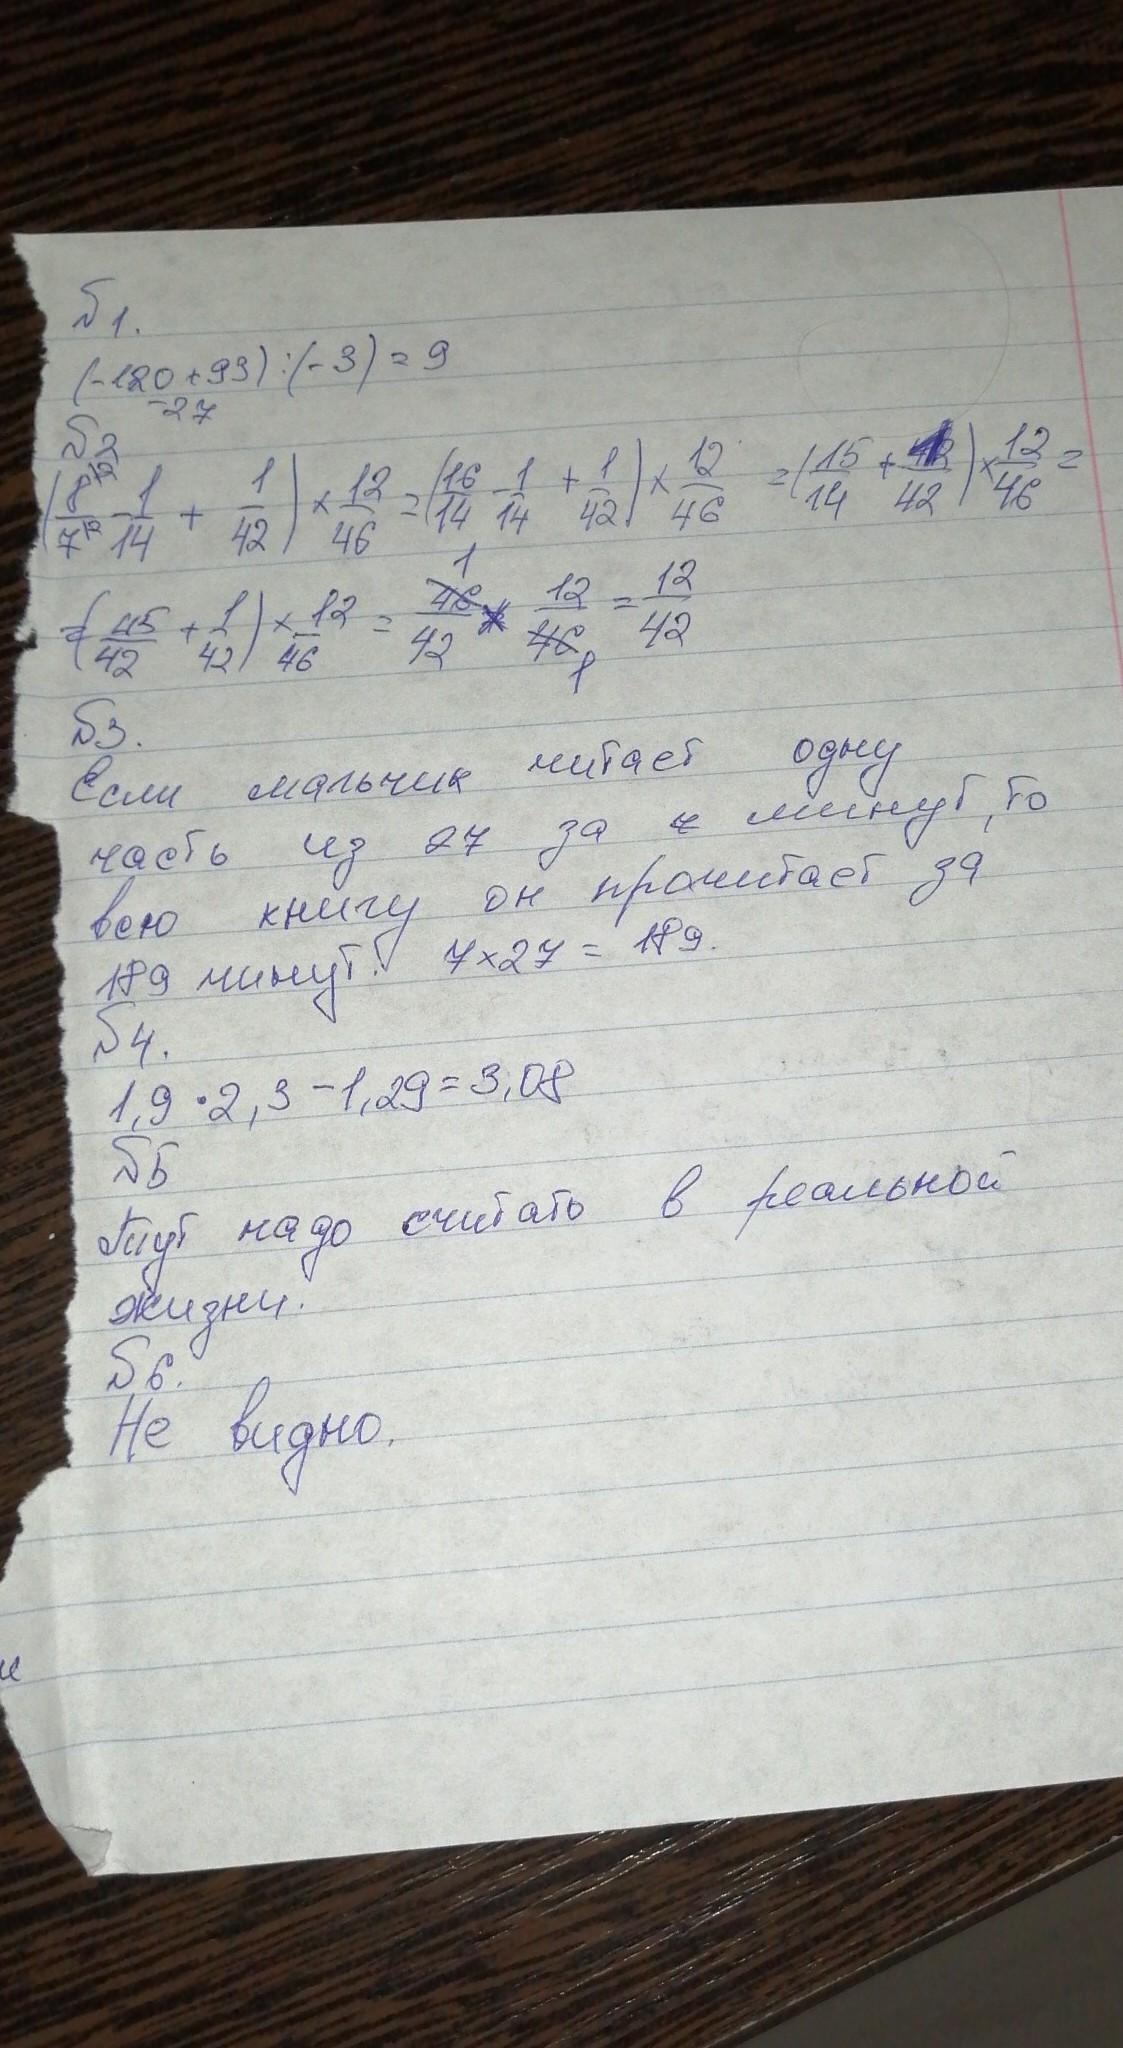 №1.
(-120+93):(-3)=9
-27
№2
(8^12/7^12 - 1/14 + 1/42) × 12/46 = (16/14 - 1/14 + 1/42) × 12/46 = (15/14 + 1/42) × 12/46 =
= (45/42 + 1/42) × 12/46 = 46/42 × 12/46 = 12/42
№3.
Если мальчик читает одну
часть из 27 за 7 минут, то
всю книгу он прочитает за
189 минут. 7×27 = 189.
№4.
1,9 • 2,3 - 1,29 = 3,08
№5
Тут надо считать в реальной
жизни.
№6.
Не видно.
и